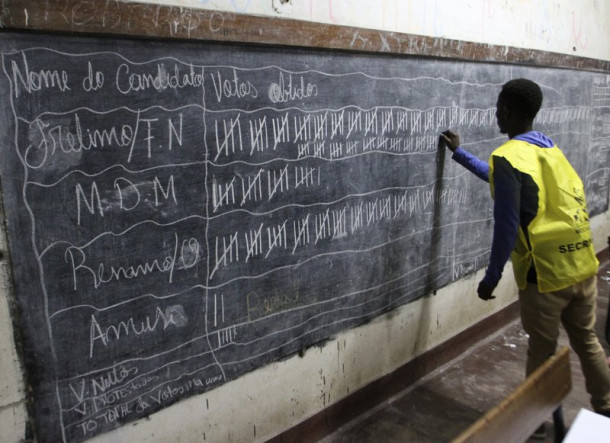 Nome do Candidato Votos obtidos
Frelimo/F.N
M.D.M
Renamo/
Amusi
V. Nulos
V.
TOTAL da Votos na urna
SECR